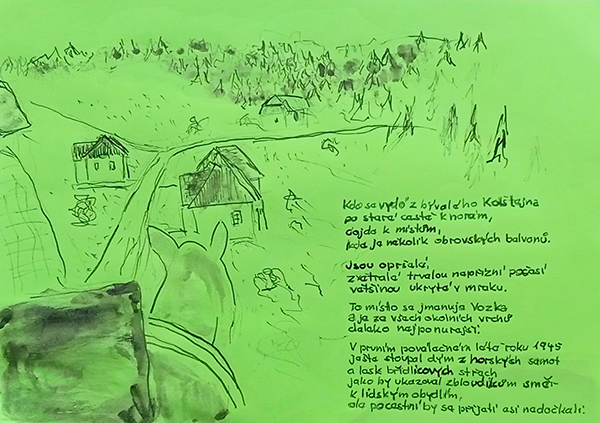 Kdo se vydá z bývalého Kolštejna
po staré cestě k horám,
dojde k místům,
kde je několik obrovských balvanů.
Jsou oprsalé,
zvětralé trvalou nepřízní počasí
většinou ukryté v mraku.
To místo se jmenuje Vozka
a je ze všech okolních vrchů
daleko nejponurejší.
V prvním poválečném létě roku 1945
ještě stoupal dým z horských samot
a lesk břidlicových střech
jako by ukazoval zbloudilcům směr
k lidským obydlím,
ale pocestní by se přijetí asi nedočkali.